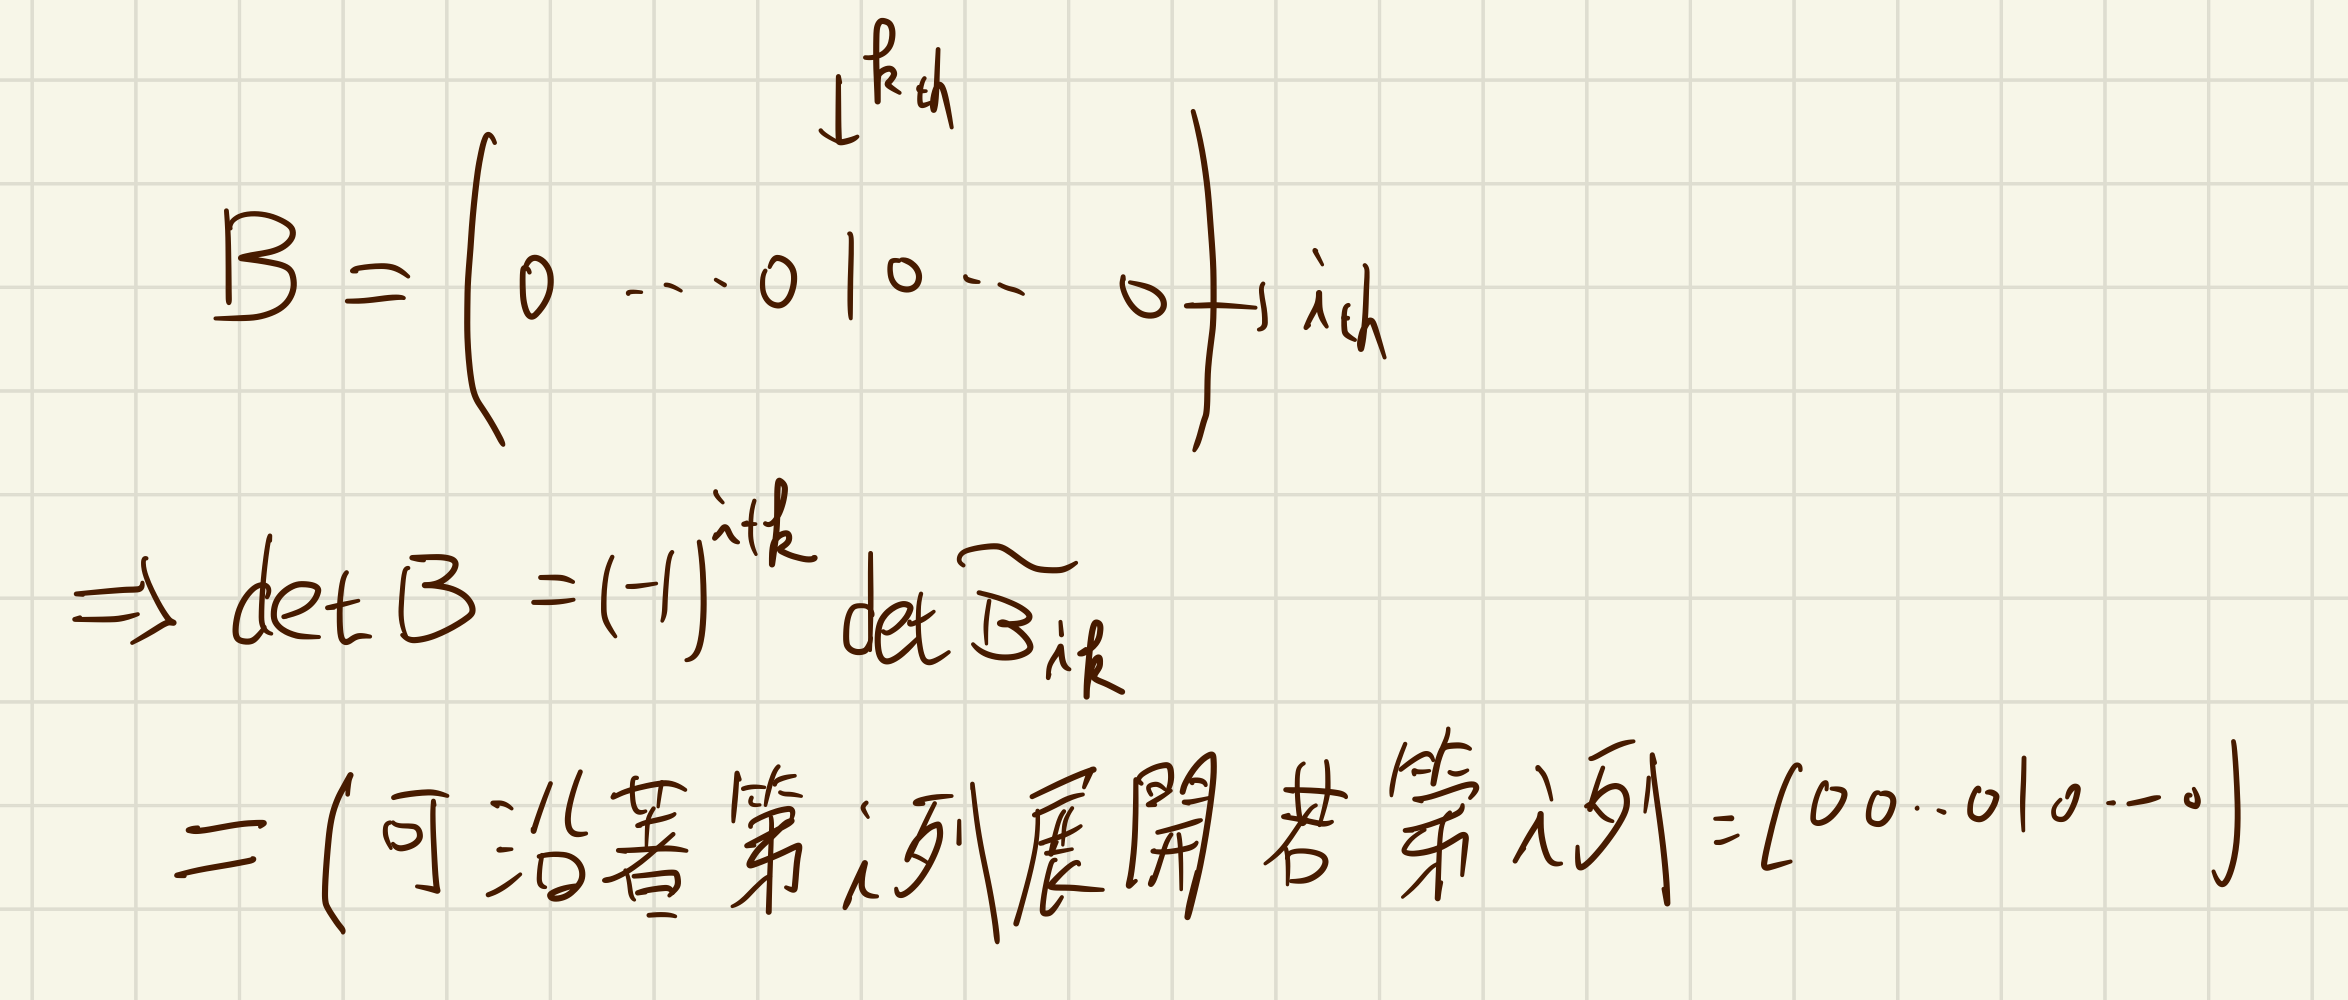 ↓ kth
B = ( 0 --- 0 1 0 -- 0 ) → ith
⇒ det B = (-1)^{i+k} det \widetilde{B}_{ik}
= (可沿著第i列展開 若第i列 = [00..010--0]